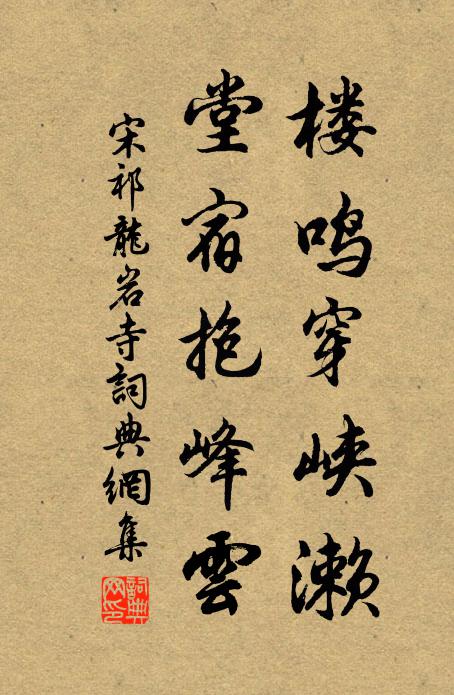 楼鸣穿峡濑
堂宿抱峰雲
宋祁龍岩寺詞典網集
詞典网印